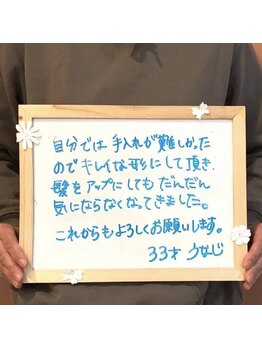 自分では 手入れが難しかった
のでキレイな形にして頂き、
髪をアップにしてもだんだん
気にならなくなってきました。
これからもよろしくお願いします。
33才 うなじ